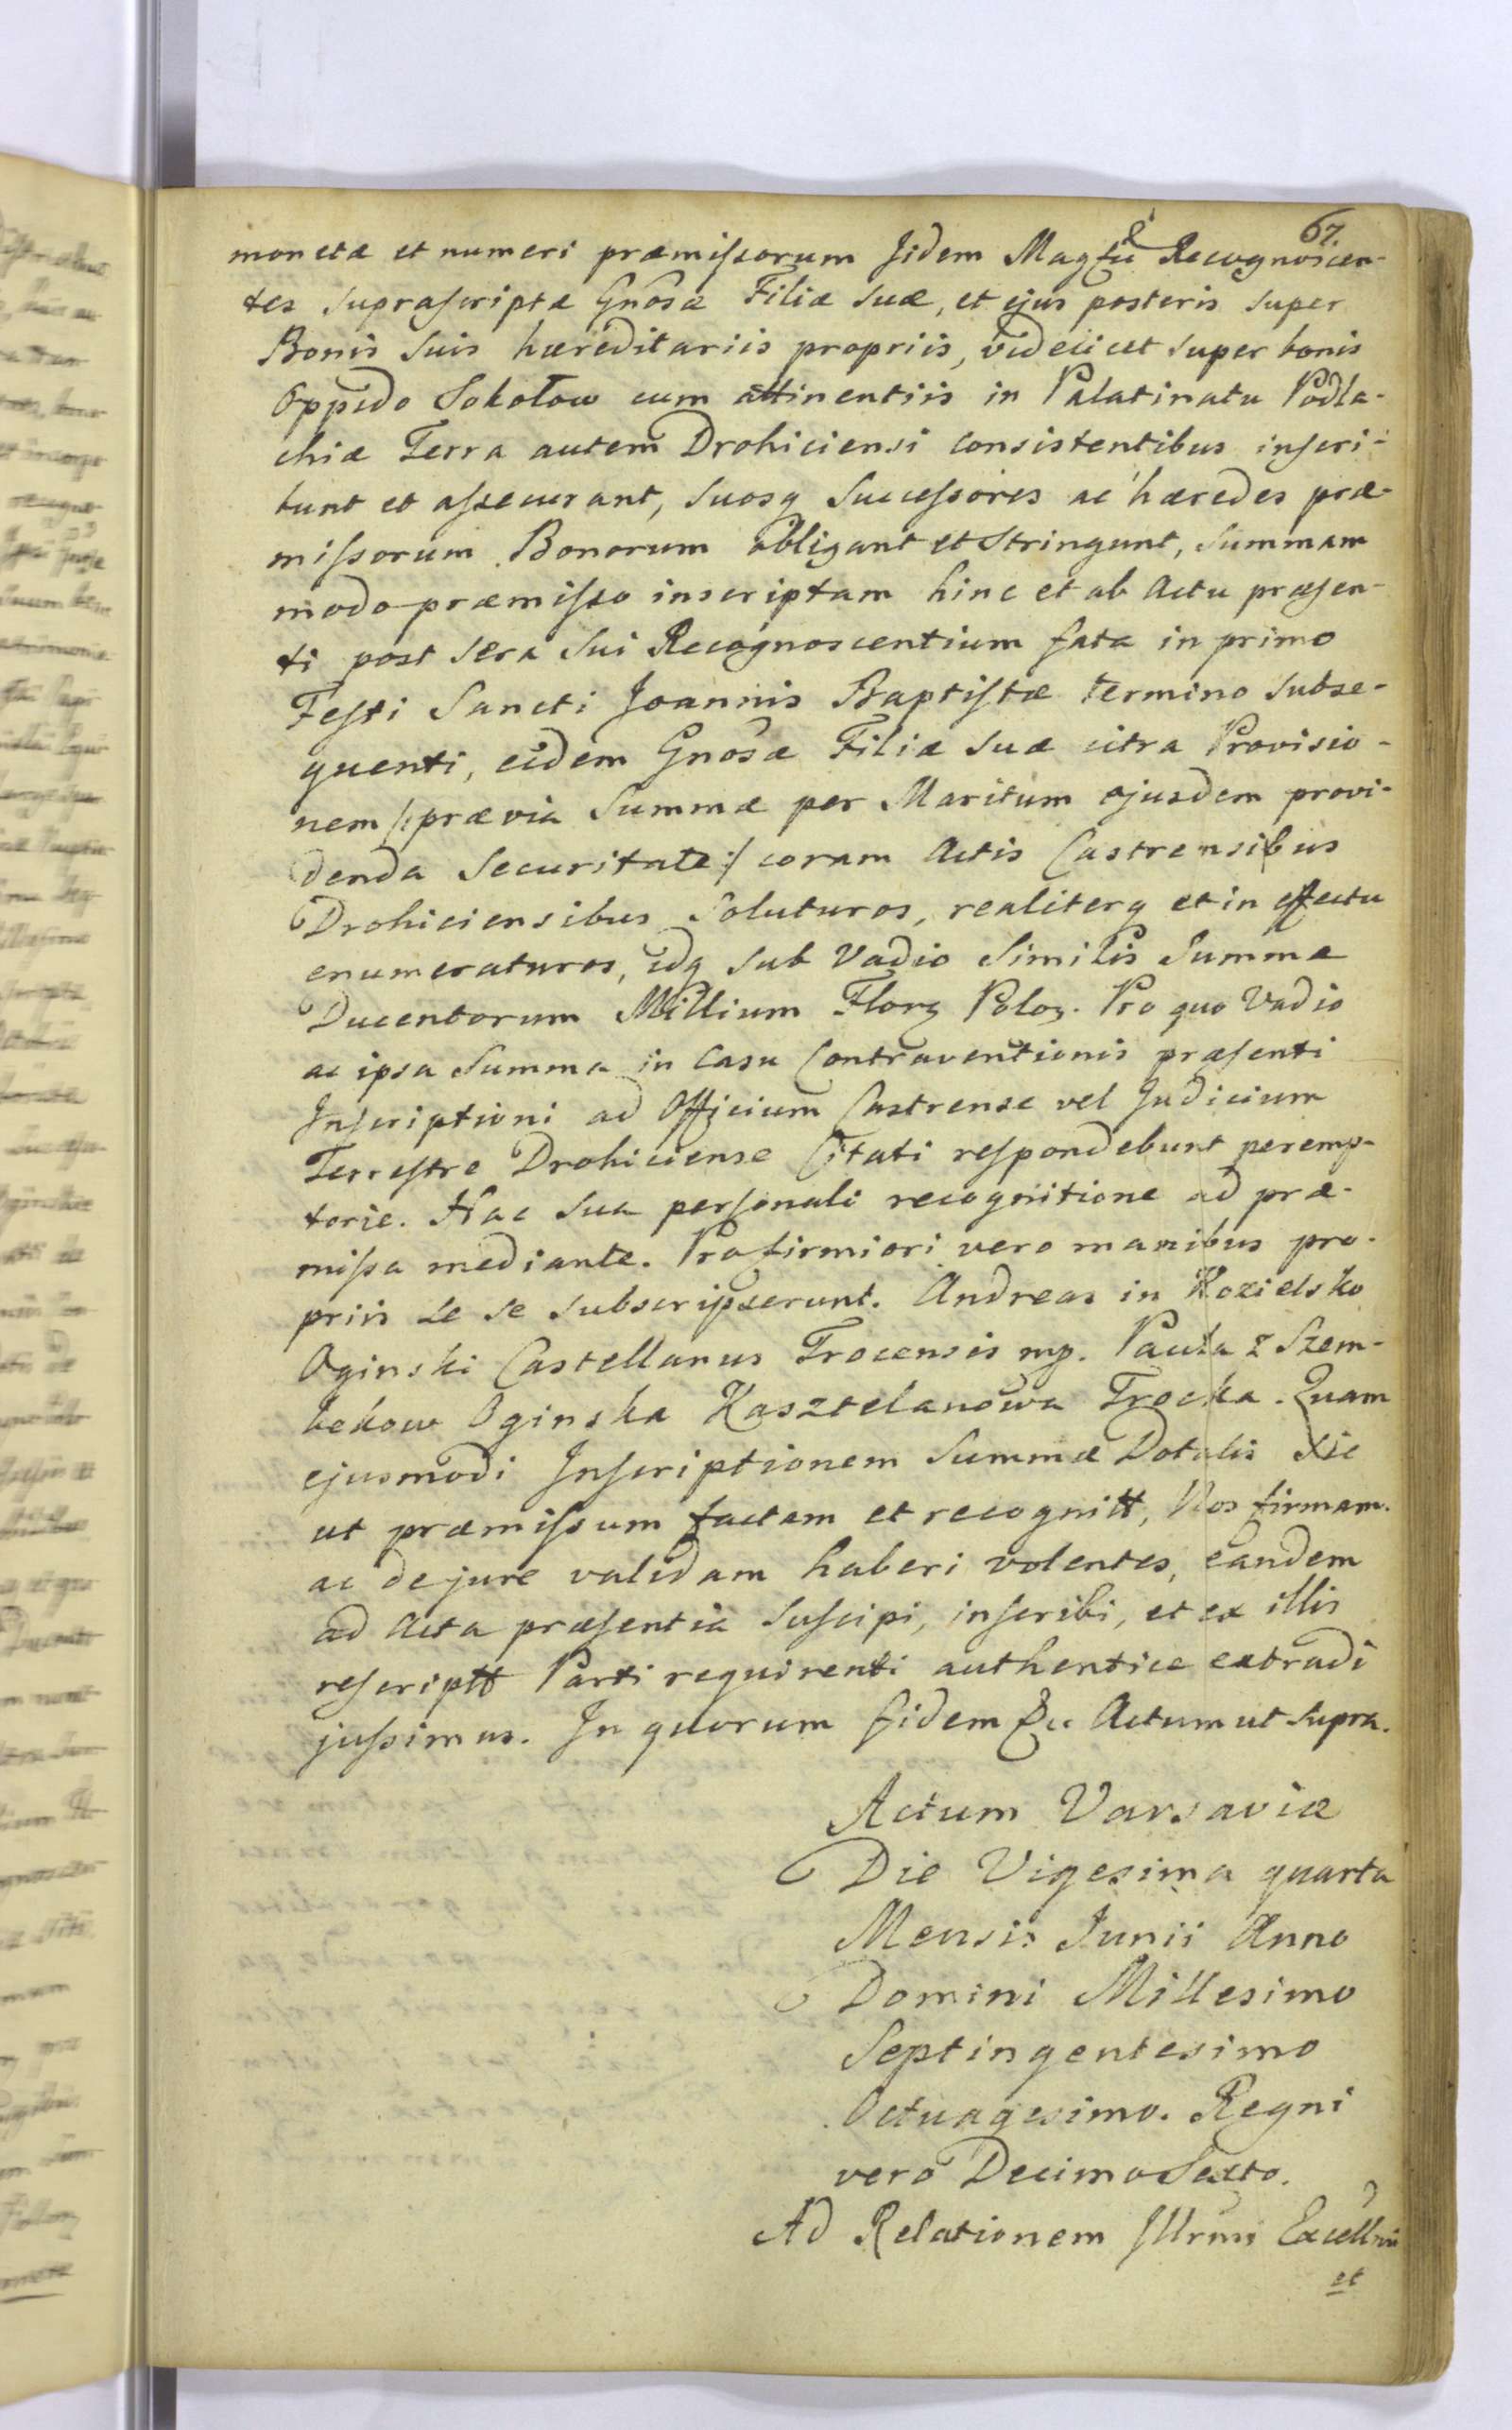 67.
monetæ et numeri præmissorum Iidem Magfci Recognoscen-
tes suprascriptæ Gnosæ Filiæ suæ, et ejus posteris super
Bonis suis hæreditariis propriis, videlicet super bonis
Oppido Sokołow cum attinentiis in Palatinatu Podla-
chiæ Terra autem Drohiciensi consistentibus inscri-
bunt et assecurant, suosq Successores ac hæredes præ-
missorum Bonorum obligant et stringunt, Summam
modo præmisso inscriptam hinc et ab Actu præsen-
ti post sera sui Recognoscentium fata in primo
Festi Sancti Joannis Baptistæ termino subse-
quenti, eidem Gnosæ Filiæ suæ citra Provisio-
nem /:prævia Summæ per Maritum ejusdem provi-
denda Securitate:/ coram Actis Castrensibus
Drohiciensibus soluturos, realiterq et in effectu
enumeraturos, idq sub Vadio similis Summæ
Ducentorum Millium Florz Poloz. Pro quo Vadio
ac ipsa Summa in casu Contraventionis præsenti
Inscriptioni ad Officium Castrense vel Judicium
Terrestre Drohiciense Citati respondebunt peremp-
torie. Hac sua personali recognitione ad præ-
missa mediante. Pro firmiori vero manibus pro-
priis se se subscripserunt. Andreas in Kozielsko
Oginski Castellanus Trocensis mp. Paula z Szem-
bekow Oginska Kasztelanowa Trocka. Quam
ejusmodi Inscriptionem Summæ Dotalis sic
ut præmissum factam et recognitt, Nos firmam
ac de jure validam haberi volentes, eandem
ad Acta præsentia suscipi, inscribi, et ex illis
rescriptt Parti requirenti authentice extradi
jussimus. In quorum fidem &c Actum ut supra.
Actum Varsaviæ
Die Vigesima quarta
Mensis Junii Anno
Domini Millesimo
Septingentesimo
Octuagesimo. Regni
vero Decimo Sexto.
Ad Relationem Illrmi Excellmi
et